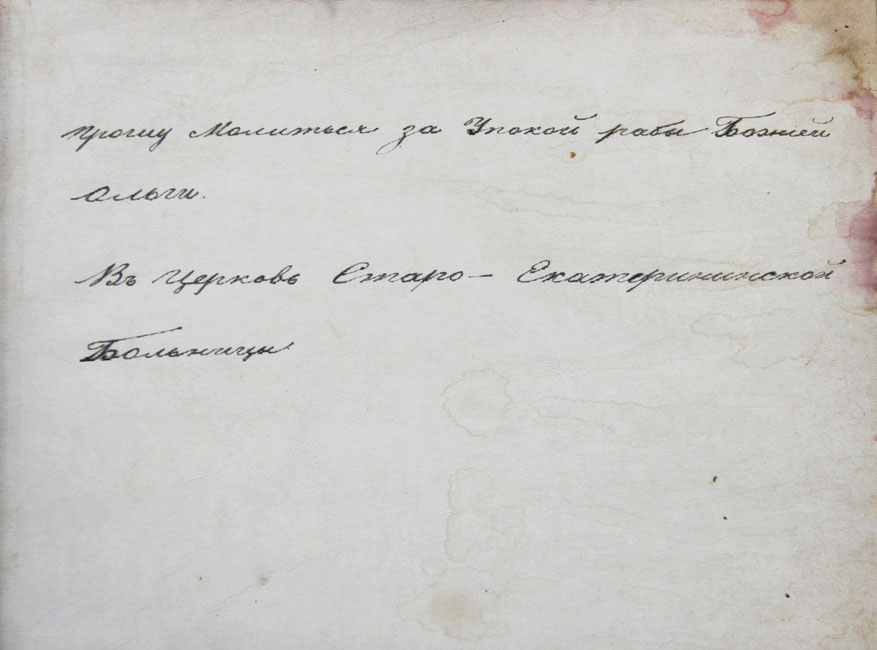 прошу Молиться за Упокой рабы Божией
Ольги.
Въ Церковь Старо- Екатерининской
Больницы